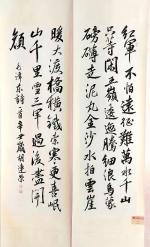 紅軍不怕遠征難萬水千山
只等閒五嶺逶迤騰細浪烏蒙
磅礴走泥丸金沙水拍雲崖
暖大渡橋橫鐵索寒更喜岷
山千里雪三軍過後盡開
顏
毛澤東詩一首辛丑歲